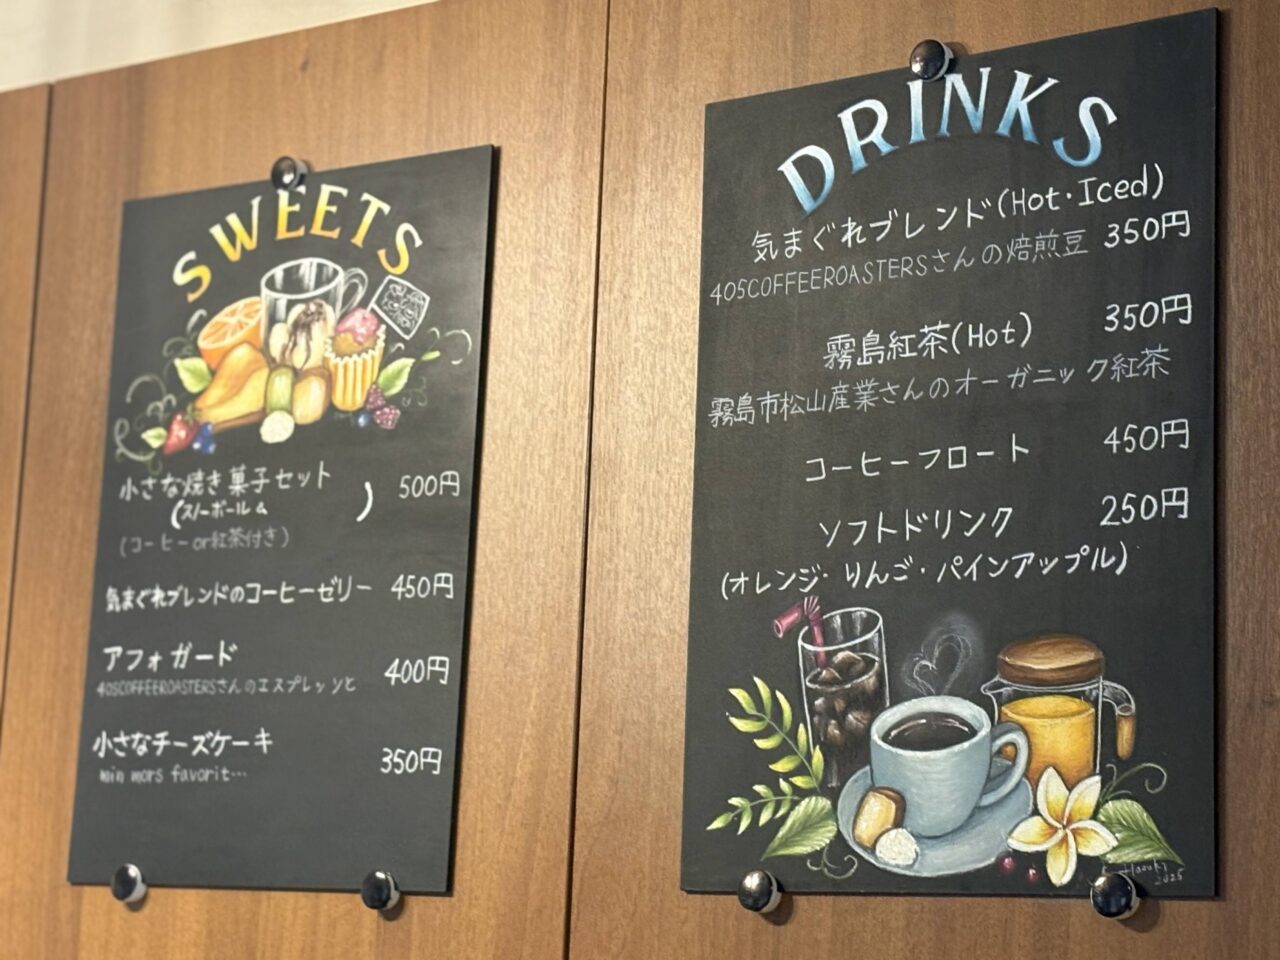 SWEETS
小さな焼き菓子セット 500円
(スノーボール& )
(コーヒーor紅茶付き)
気まぐれブレンドのコーヒーゼリー 450円
アフォガード 400円
405COFFEEROASTERSさんのエスプレッソと
小さなチーズケーキ 350円
min mors favorit…
DRINKS
気まぐれブレンド(Hot・Iced)
405COFFEEROASTERSさんの焙煎豆 350円
霧島紅茶(Hot) 350円
霧島市松山産業さんのオーガニック紅茶
コーヒーフロート 450円
ソフトドリンク 250円
(オレンジ・りんご・パインアップル)
2025